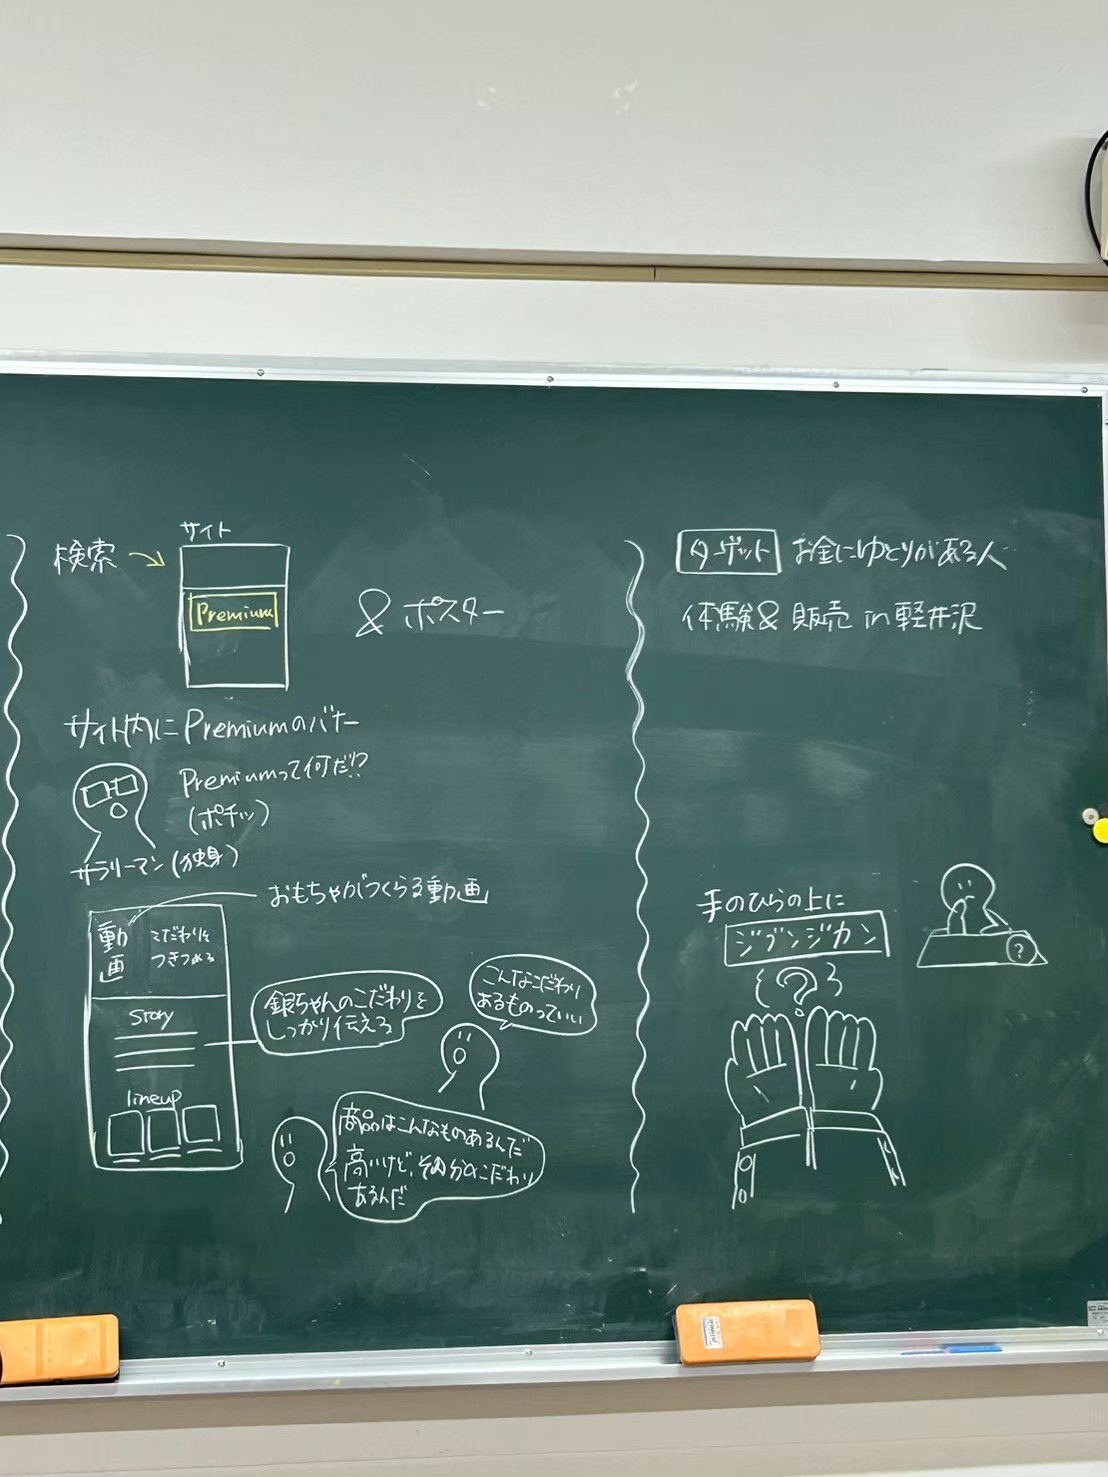 サイト
検索
Premium
& ポスター
サイト内にPremiumのバナー
Premiumって何だ!?
(ポチッ)
サラリーマン(独身)
おもちゃがつくらる動画
動画
こだわりを
つきつめる
Story
lineup
銀ちゃんのこだわりを
しっかり伝える
こんなこだわり
あるものっていい
商品はこんなものあるんだ
高いけど、その分のこだわり
あるんだ
ターゲット お金にゆとりがある人
体験& 販売 in 軽井沢
手のひらの上に
ジブンジカン
?
?